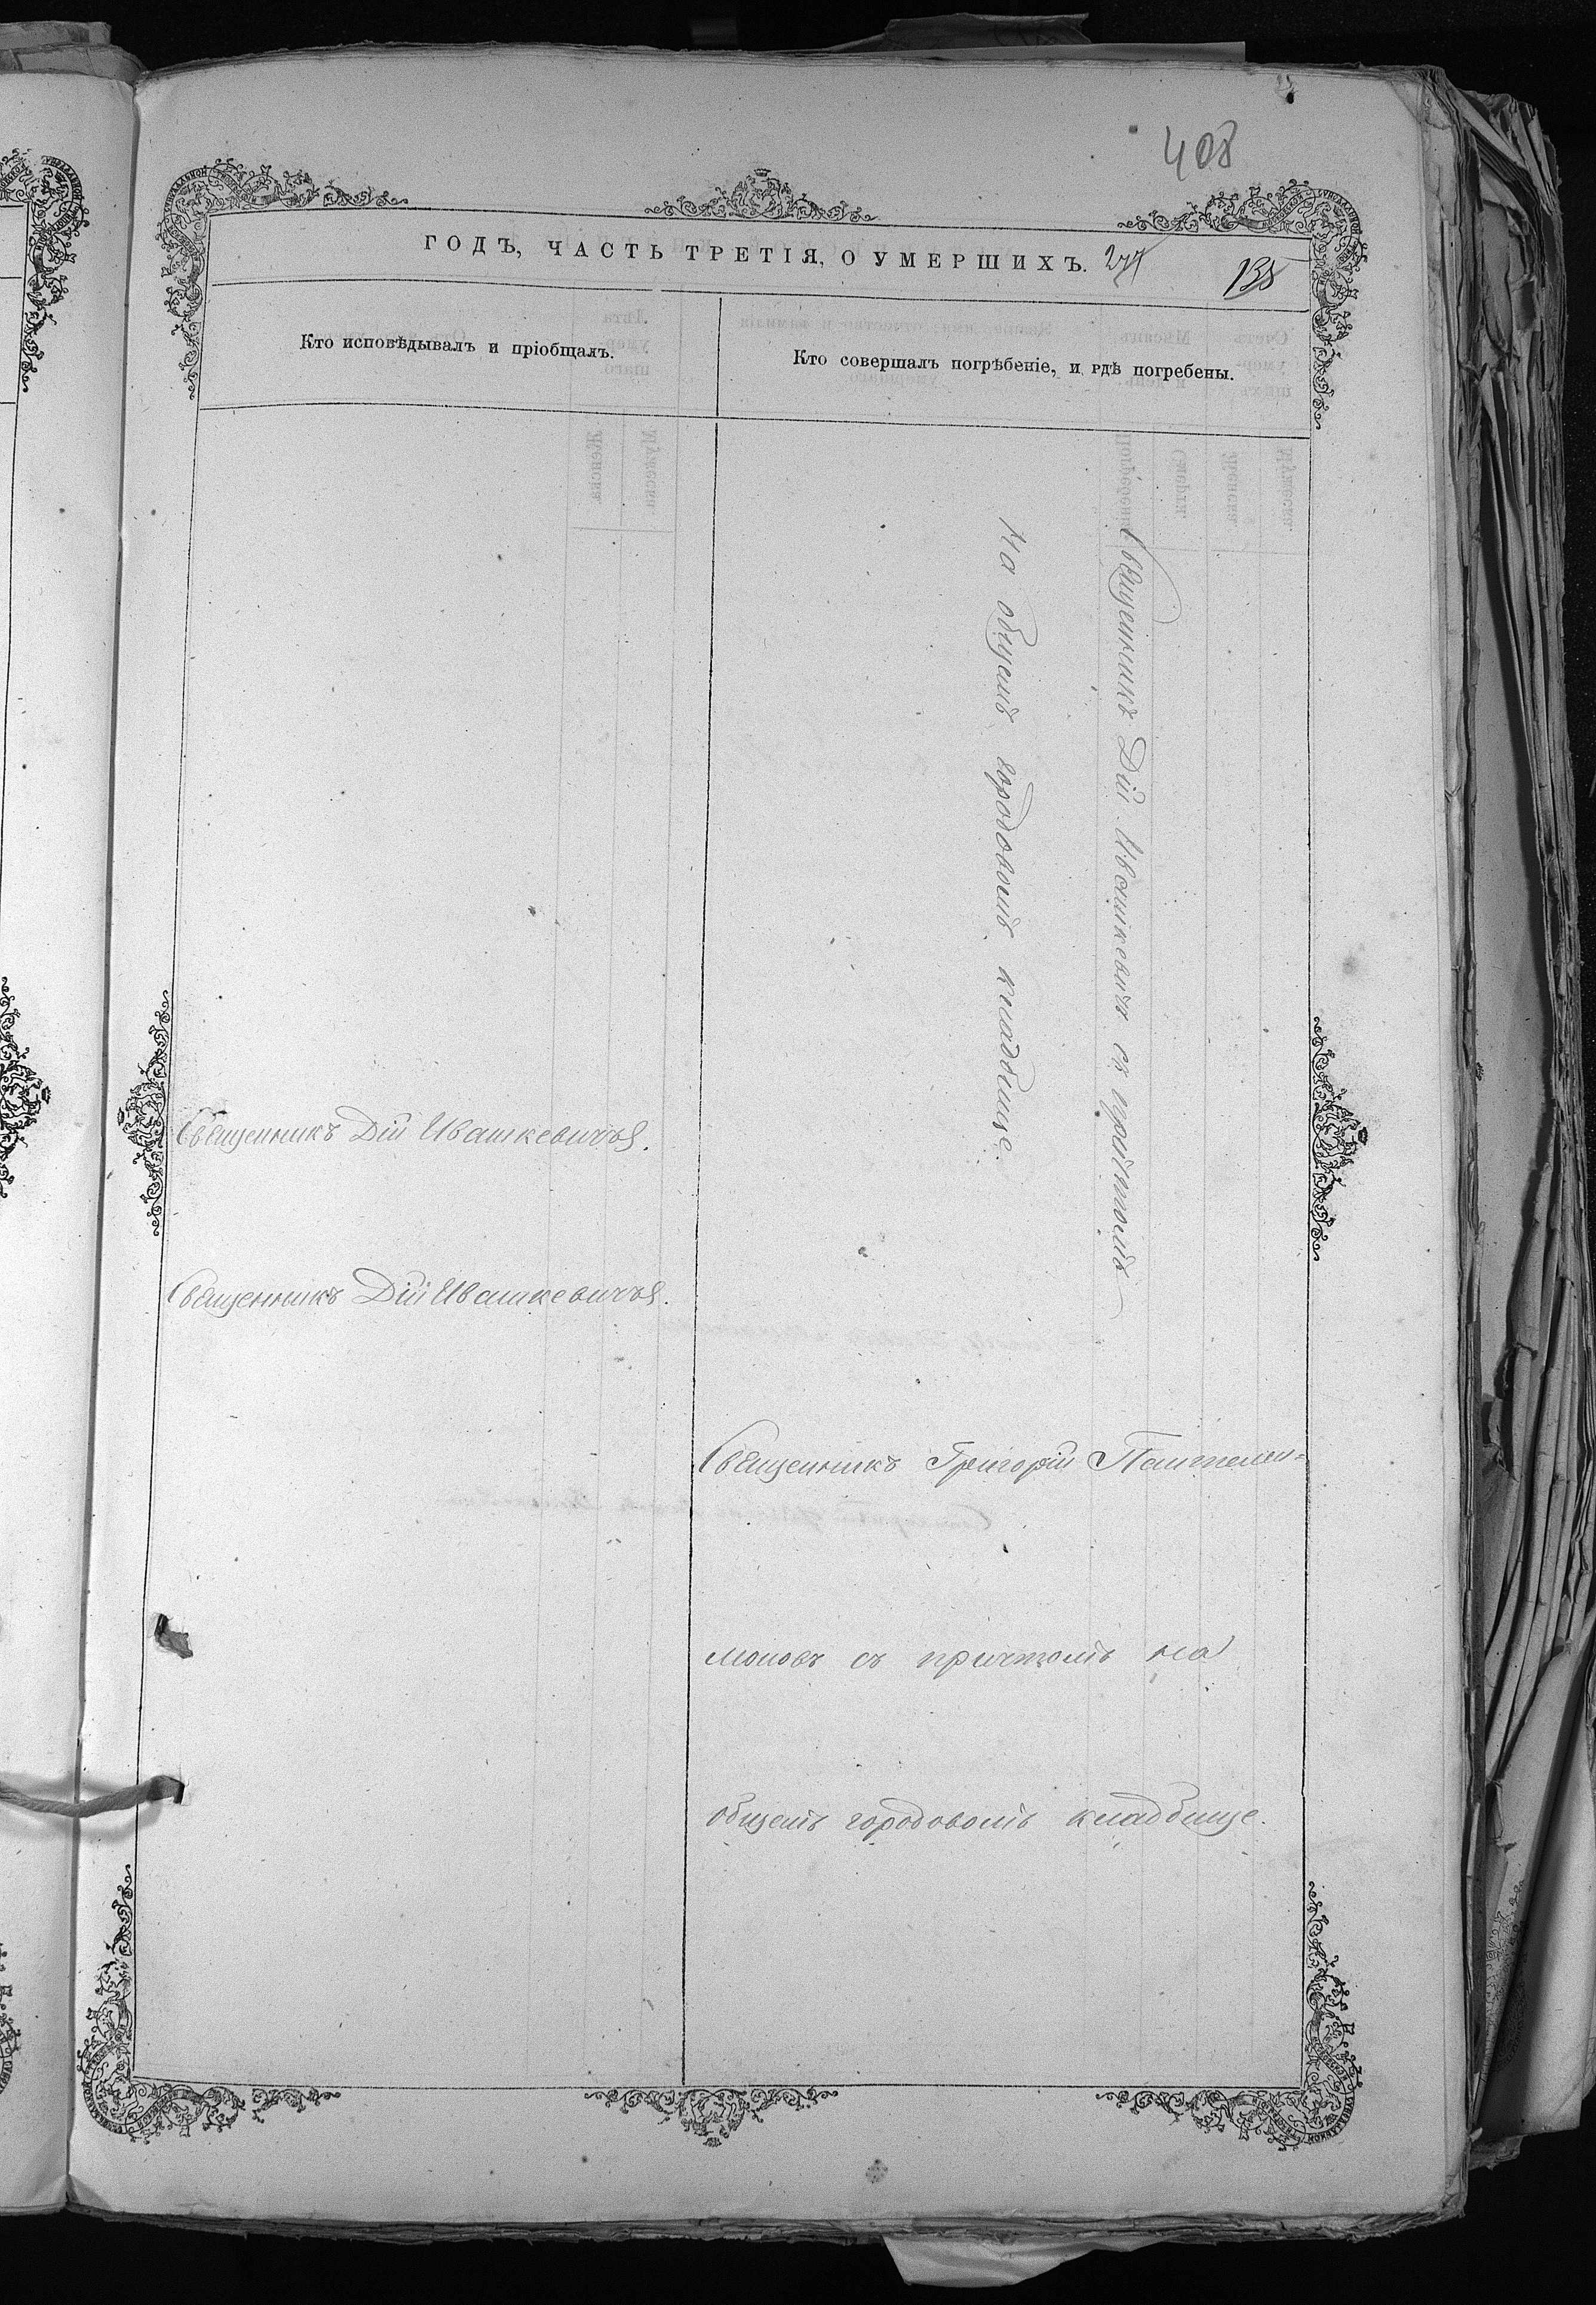 408
ГОДЪ, ЧАСТЬ ТРЕТІЯ, О УМЕРШИХЪ.
135
Кто исповѣдывалъ и пріобщалъ.
Кто совершалъ погрѣбеніе, и гдѣ погребены.
Священникъ Дій Ивашкевичъ.
Священникъ Дій Ивашкевичъ.
Священникъ Дій Ивашкевичъ съ причтомъ
На общемъ городовомъ кладбище.
Священникъ Григорій Пантелей=
моновъ съ причтомъ на
общемъ городовомъ кладбище.